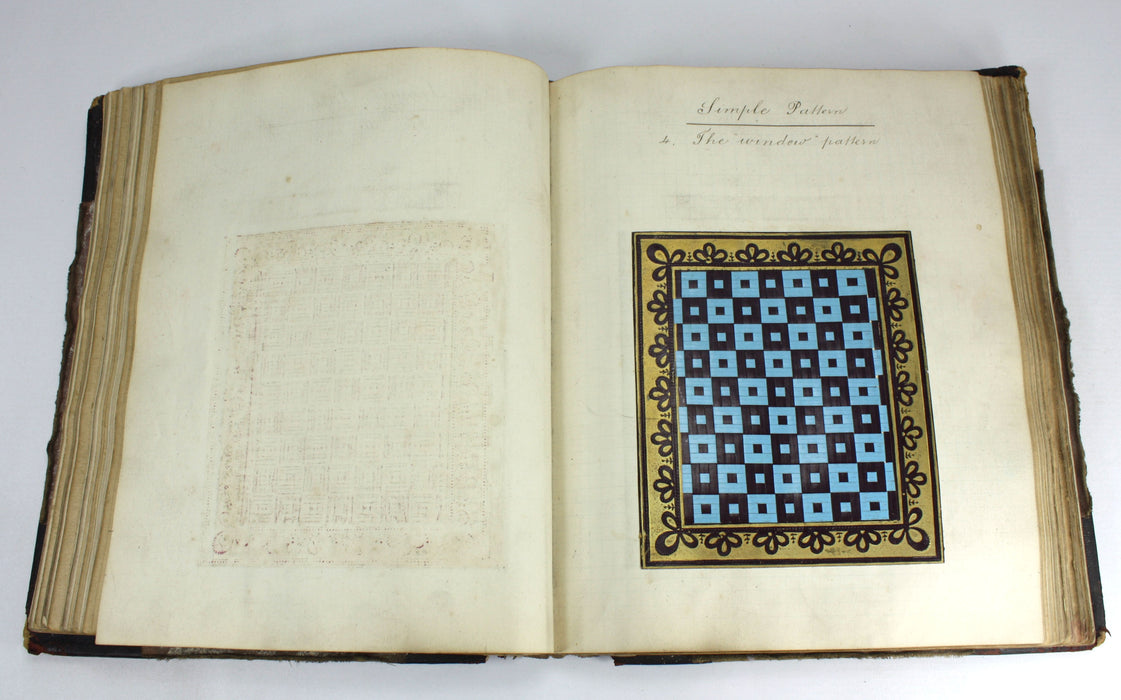 Simple Pattern
4. The "window" pattern